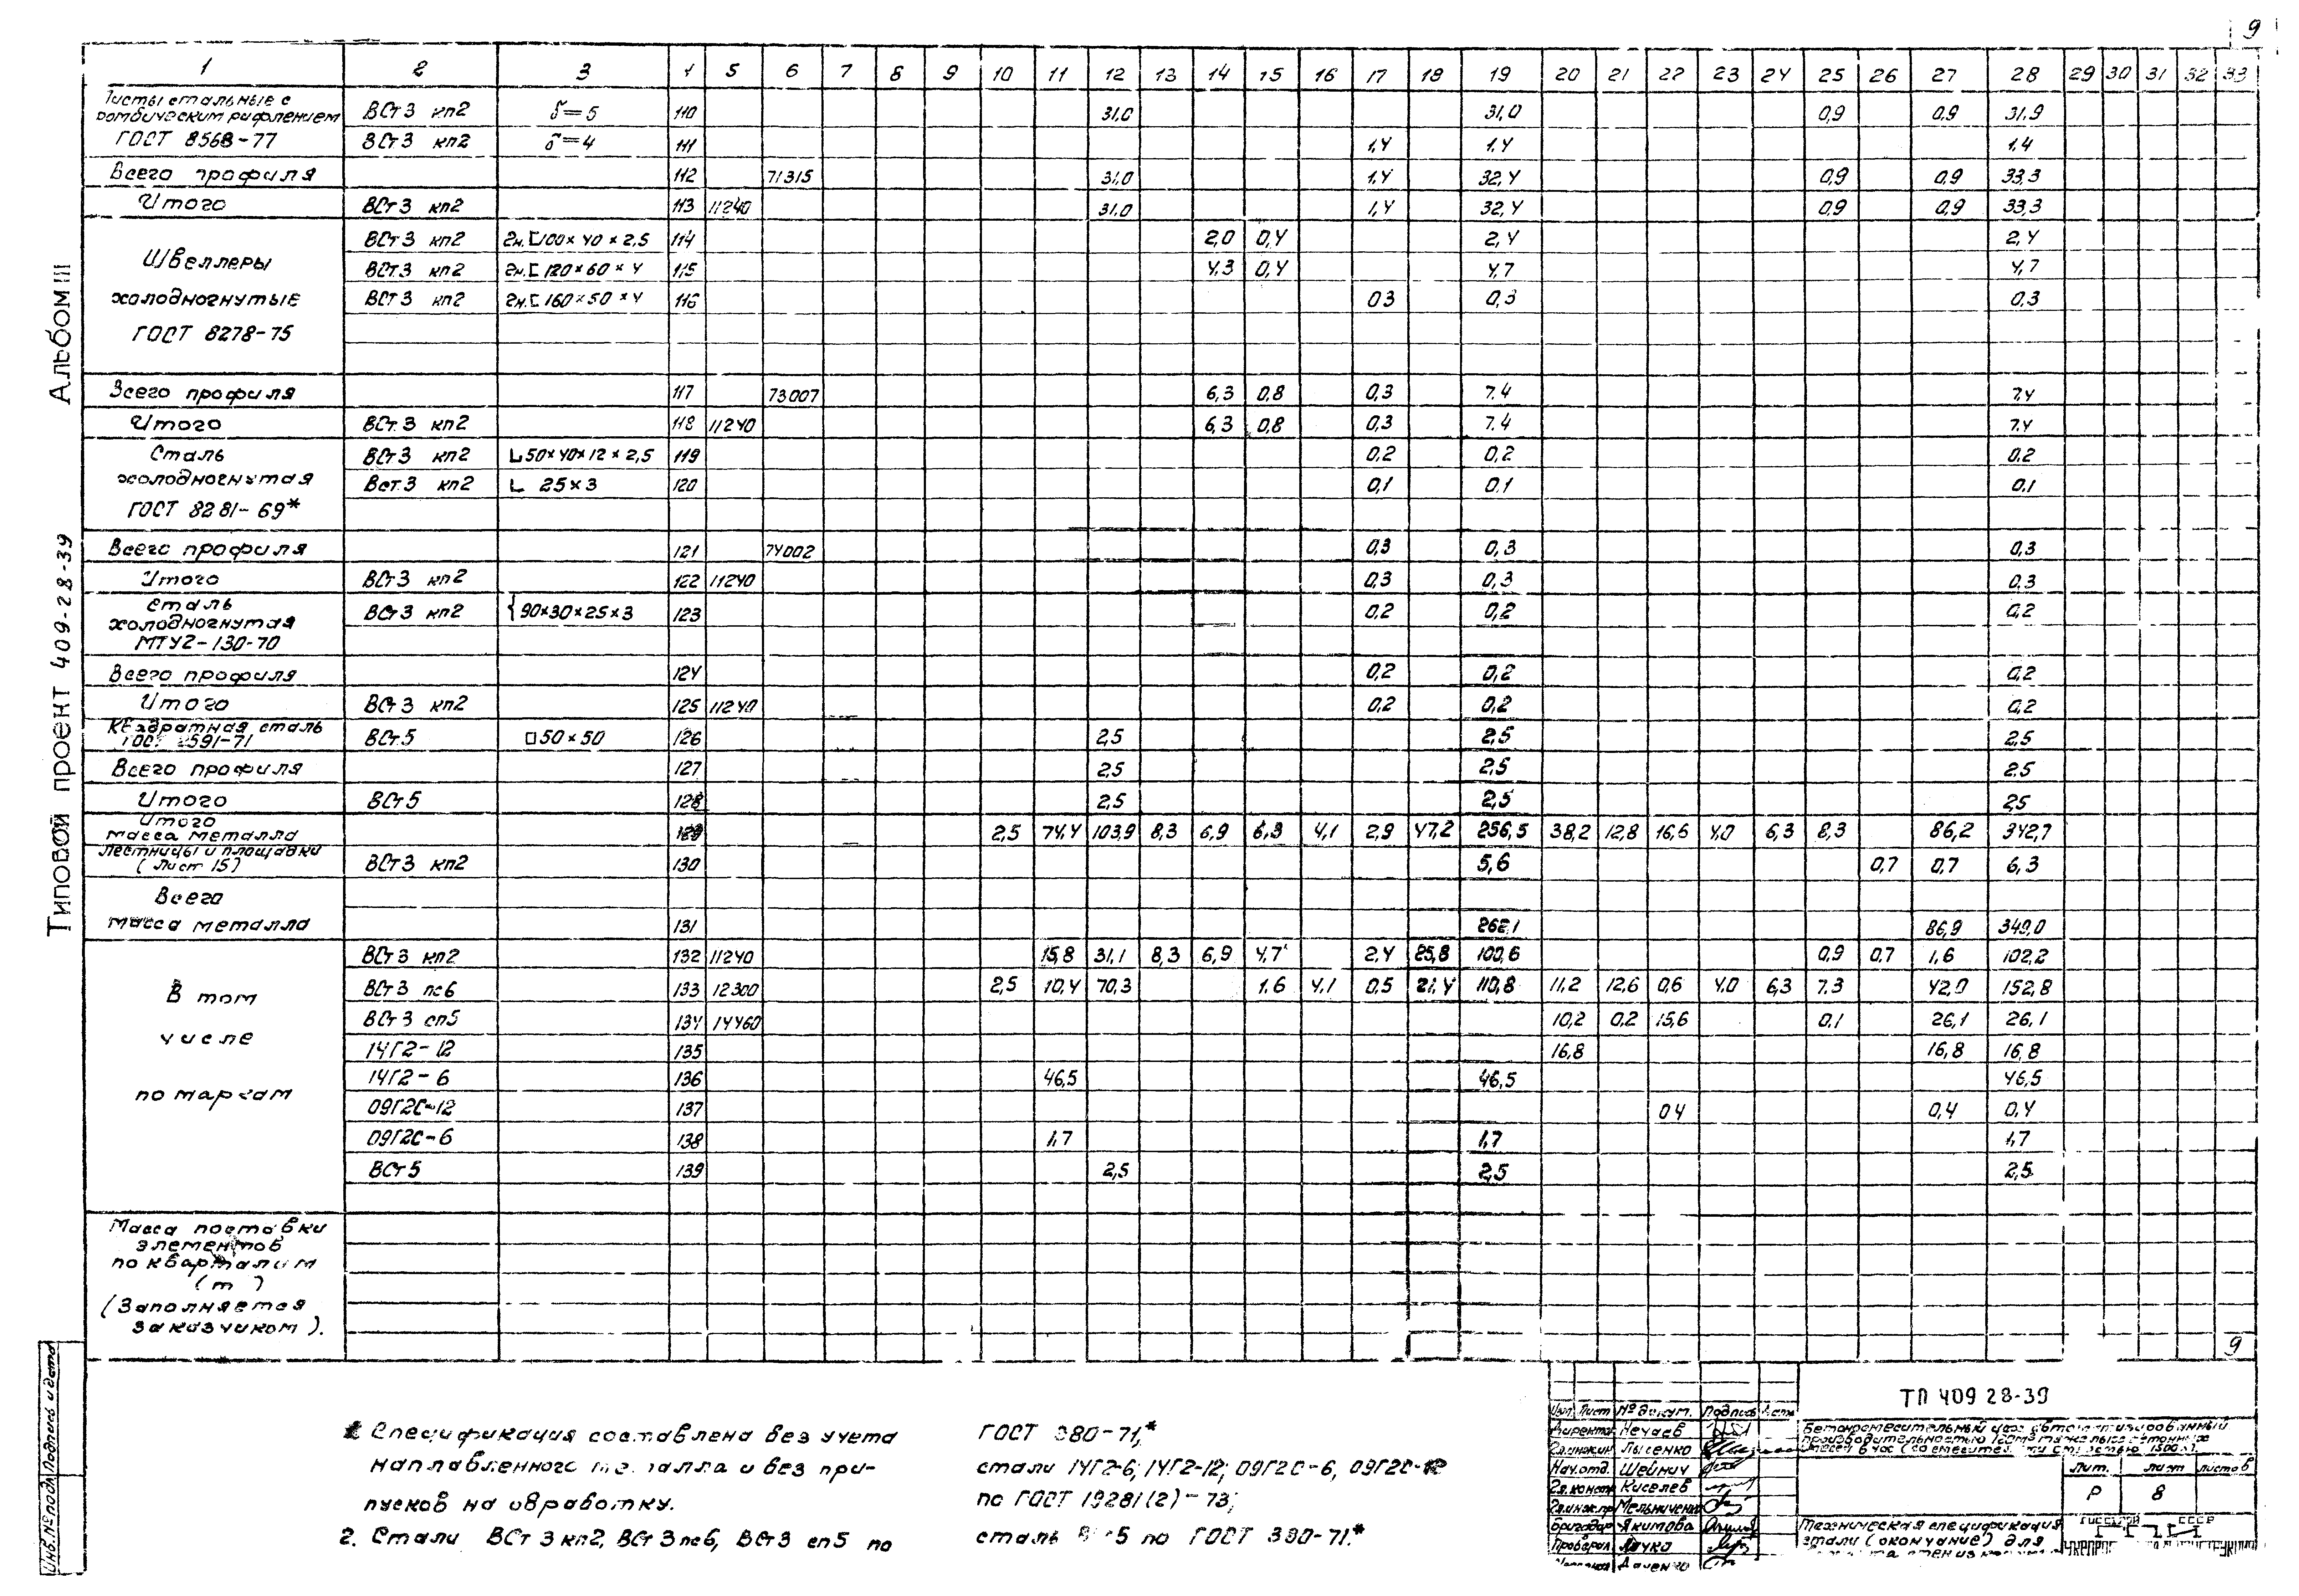 9
1 2 3 4 5 6 7 8 9 10 11 12 13 14 15 16 17 18 19 20 21 22 23 24 25 26 27 28 29 30 31 32 33
Листы стальные с ВСт3 кп2 δ=5 110 31,0 31,0 0,9 0,9 31,9
ромбическим рифлением
ГОСТ 8568-77 ВСт3 кп2 δ=4 111 1,4 1,4 1.4
Всего профиля 112 71315 31,0 1,4 32,4 0,9 0,9 33,3
Итого ВСт3 кп2 113 11240 31,0 1,4 32,4 0,9 0,9 33,3
ВСт3 кп2 гн.[100×40×2,5 114 2,0 0,4 2,4 2,4
Швеллеры ВСт.3 кп2 гн.[120×60×4 115 4,3 0,4 4,7 4,7
холодногнутые ВСт3 кп2 гн.[160×50×4 116 0,3 0,3 0,3
ГОСТ 8278-75
Всего профиля 117 73007 6,3 0,8 0,3 7.4 7,4
Итого ВСт.3 кп2 118 11240 6,3 0,8 0,3 7.4 7,4
Сталь ВСт3 кп2 50×40×12×2,5 119 0,2 0,2 0,2
холодногнутая Вст.3 кп2 25×3 120 0,1 0,1 0,1
ГОСТ 8281-69*
Всего профиля 121 74002 0,3 0,3 0,3
Итого ВСт3 кп2 122 11240 0,3 0,3 0,3
Сталь ВСт3 кп2 90×30×25×3 123 0,2 0,2 0,2
холодногнутая
МТУ2-130-70
Всего профиля 124 0,2 0,2 0,2
Итого ВСт3 кп2 125 11240 0,2 0,2 0,2
Квадратная сталь ВСт.5 □50×50 126 2,5 2,5 2,5
ГОСТ 2591-71
Всего профиля 127 2,5 2,5 2,5
Итого ВСт5 128 2,5 2,5 2,5
Итого
масса металла 129 2,5 74,4 103,9 8,3 6,9 6,3 4,1 2,9 47,2 256,5 38,2 12,8 16,6 4,0 6,3 8,3 86,2 342,7
Лестницы и площадки
(Лист 15) ВСт3 кп2 130 5,6 0,7 0,7 6,3
Всего
масса металла 131 262,1 86,9 349,0
ВСт3 кп2 132 11240 15,8 31,1 8,3 6,9 4,7 2,4 25,8 100,6 0,9 0,7 1,6 102,2
В том ВСт3 пс6 133 12300 2,5 10,4 70,3 1.6 4,1 0,5 21,4 110,8 11,2 12,6 0,6 4,0 6,3 7,3 42,0 152,8
ВСт3 сп5 134 14460 10,2 0,2 15,6 0,1 26,1 26,1
числе
14Г2-12 135 16,8 16,8 16,8
14Г2-6 136 46,5 46,5 46,5
по маркам
09Г2С-12 137 0,4 0,4 0,4
09Г2С-6 138 1,7 1,7 1,7
ВСт5 139 2,5 2,5 2,5
Масса поставки
элементов
по кварталам
(т)
(Заполняется
заказчиком).
9
Альбом III
Типовой проект 409-28-39
Инв.№ подл. Подпись и дата
Спецификация составлена без учета
наплавленного металла и без при-
пусков на обработку.
2. Стали ВСт3кп2, ВСт3пс6, ВСт3 сп5 по
ГОСТ 380-71,*
стали 14Г2-6; 14Г2-12; 09Г2С-6, 09Г2С-12
по ГОСТ 19281(2)-73;
сталь ВСт5 по ГОСТ 380-71.*
ТП 409 28-39
Лист № докум. Подпись
Нечаев
Лысенко
Нач.отд. Шейнич
Гл.конст Киселев
Гл.инж.пр Мельниченко
Бригадир Якимова
Проверил
Бетоносмесительный цех автоматизированный
Лит. Лист Листов
Р 8
Техническая спецификация
стали (окончание) для
ГОССТРОЙ СССР